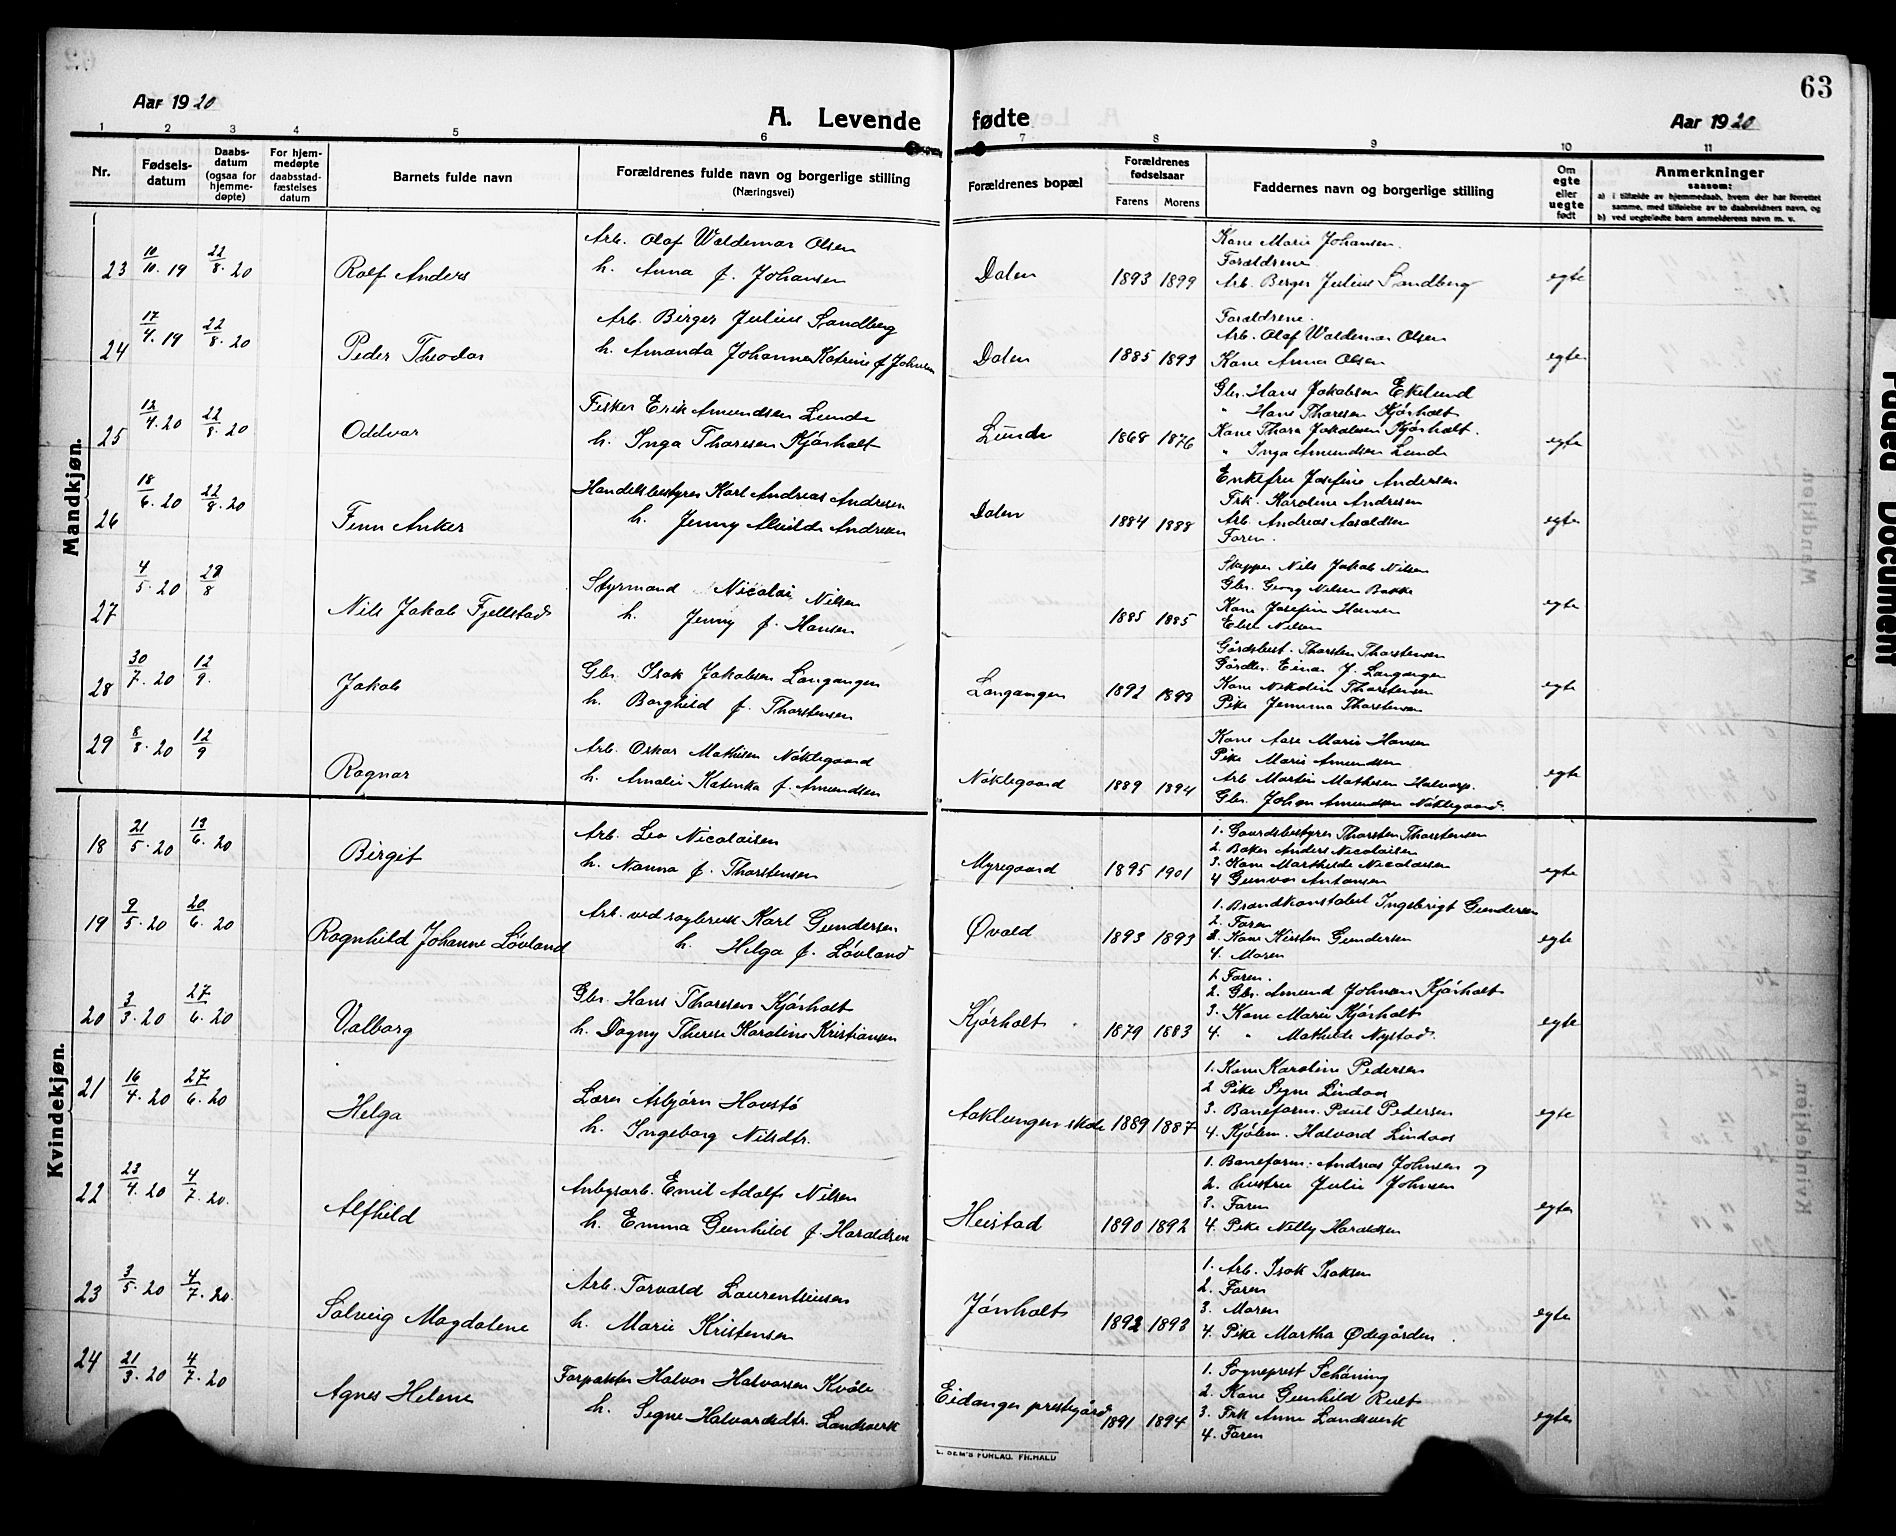 63
Aar 1920
A. Levende fødte
Aar 1920
1 2 3 4 5 6 7 8 9 10 11
Nr.
Fødsels-
datum
Daabs-
datum
(ogsaa for
hjemme-
døpte)
For hjem-
medøpte
daabsstad-
fæstelses
datum
Barnets fulde navn
Forældrenes fulde navn og borgerlige stilling
(Næringsvei)
Forældrenes bopæl
Forældrenes
fødselsaar
Farens Morens
Faddernes navn og borgerlige stilling
Om
egte
eller
uegte
født
Anmerkninger
saasom:
a) i tilfælde av hjemmedaab, hvem der har forrettet
samme, med tilføielse av to daabsvidners navn, og
b) ved uegtefødte barn anmelderens navn m. v.
Mandkjøn.
23 10/10. 19 22/8. 20 Rolf Anders
Arb. Olaf Waldemar Olsen
h. Anna f. Johansen
Dalen 1893 1899
Kone Marie Johansen.
Forældrene
Arb. Berger Julius Sandberg
egte
24 17/4. 19 22/8. 20 Peder Theodor
Arb. Birger Julius Sandberg
h. Amanda Johanne Katrine f. Johnsen
Dalen 1885 1893
Forældrene.
Arb. Olaf Waldemar Olsen
Kone Anna Olsen
egte
25 12/4. 20 22/8. 20 Oddvar
Fisker Erik Amundsen Lunde
h. Inga Thoresen Kjørholt
Lunde 1868 1876
Gbr. Hans Jakobsen Ekelund
" Hans Thoresen Kjørholt
Kone Thora Jakobsen Kjørholt.
" Inga Amundsen Lunde
egte
26 18/6. 20 22/8. 20 Finn Anker
Handelsbestyrer Karl Andreas Andresen
h. Jenny Alvilde Andresen
Dalen 1884 1888
Enkefru Josefine Andersen
Frk. Karoline Andresen
Arb. Andreas Aaraldsen
Faren.
egte
27 4/5. 20 29/8 Nils Jakob Fjellstad
Styrmand Nicolai Nilsen
h. Jenny f. Hansen
1885 1885
Skipper Nils Jakob Nilsen
Gbr. Georg Nilsen Bakke
Kone Josefine Hansen
Elise Nilsen
egte
28 30/7. 20 12/9. Jakob
Gbr. Isak Jakobsen Langangen
h. Borghild f. Thorstensen
Langangen 1892 1899
Gårdsbest. Thorsten Thorstensen
Gårdbr. Einar J. Langangen
Kone Nikoline Thorstensen
Pike Jemima Thorstensen
egte
29 8/8. 20 12/9 Ragnar
Arb. Oskar Mathisen Nøklegaard
h. Amalie Katinka f. Amundsen
Nøklegaard 1889 1894
Kone Aase Marie Hansen
Pike Marie Amundsen.
Arb. Martin Mathisen Halvorp.
Gbr. Johan Amundsen Nøklegaard.
egte
Kvindekjøn.
18 21/5. 20 13/6. 20 Birgit
Arb. Leo Nicolaisen
h. Nanna f. Thorstensen
Myregaard 1895 1901
1. Gaardsbestyrer Thorsten Thorstensen
2. Baker Anders Nicolaisen
3. Kone Marthilde Nicolaisen
4 Gunvor Antonsen
egte
19 9/5. 20 20/6. 20 Ragnhild Johanne Løvland
Arb. ved Karl Gundersen
h. Helga f. Løvland
Øvald 1893 1893
1. Brandkonstabel Ingebrigt Gundersen
2. Faren
3. Kone Kirsten Gundersen
4. Moren
egte
20 3/3. 20 27/6. 20 Valborg
Gbr. Hans Thoresen Kjørholt
h. Dagny Therese Karoline Kristiansen
Kjørholt 1879 1883
1. Faren.
2. Gbr. Amund Johnsen Kjørholt
3. Kone Marie Kjørholt
4. " Mathilde Nystad.
egte
21 16/4. 20 27/6. 20 Helga
Lærer Asbjørn Hovstø
h. Ingeborg Nilsdtr.
Aaklungen skole 1889 1887
1. Kone Karoline Pedersen
2 Pike Signe Lindaas
3. Baneform. Paul Pedersen
4. Kjølm. Halvard Lindaas
egte
22 23/4. 20 4/7. 20. Alfhild
Anbgsarb. Emil Adolf Nilsen
h. Emma Gunhild f. Haraldsen
Heistad 1890 1892
1. Baneform. Andreas Johnsen og
2. hustru Julie Johnsen
3. Faren
4. Pike Nelly Haraldsen
egte
23 3/5. 20 4/7. 20. Solveig Magdalene
Arb. Torvald Laurentsiusen
h. Marie Kristensen
Jønholt 1892 1893
1. Arb. Isak Isaksen
2. Faren
3. Moren
4. Pike Martha Ødegården.
egte
24 21/3. 20 4/7. 20 Agnes Helene
Forpakter Halvor Halvorsen Kvåle
h. Signe Halvardsdtr. Landsverk
Eidanger prestegård 1891 1894
1. Sogneprest Schøning
2. Kone Gunhild Ruet
3. Frk Anne Landsverk
4. Faren
egte
E. SEM'S FORLAG. FR.HALD
Faded Document